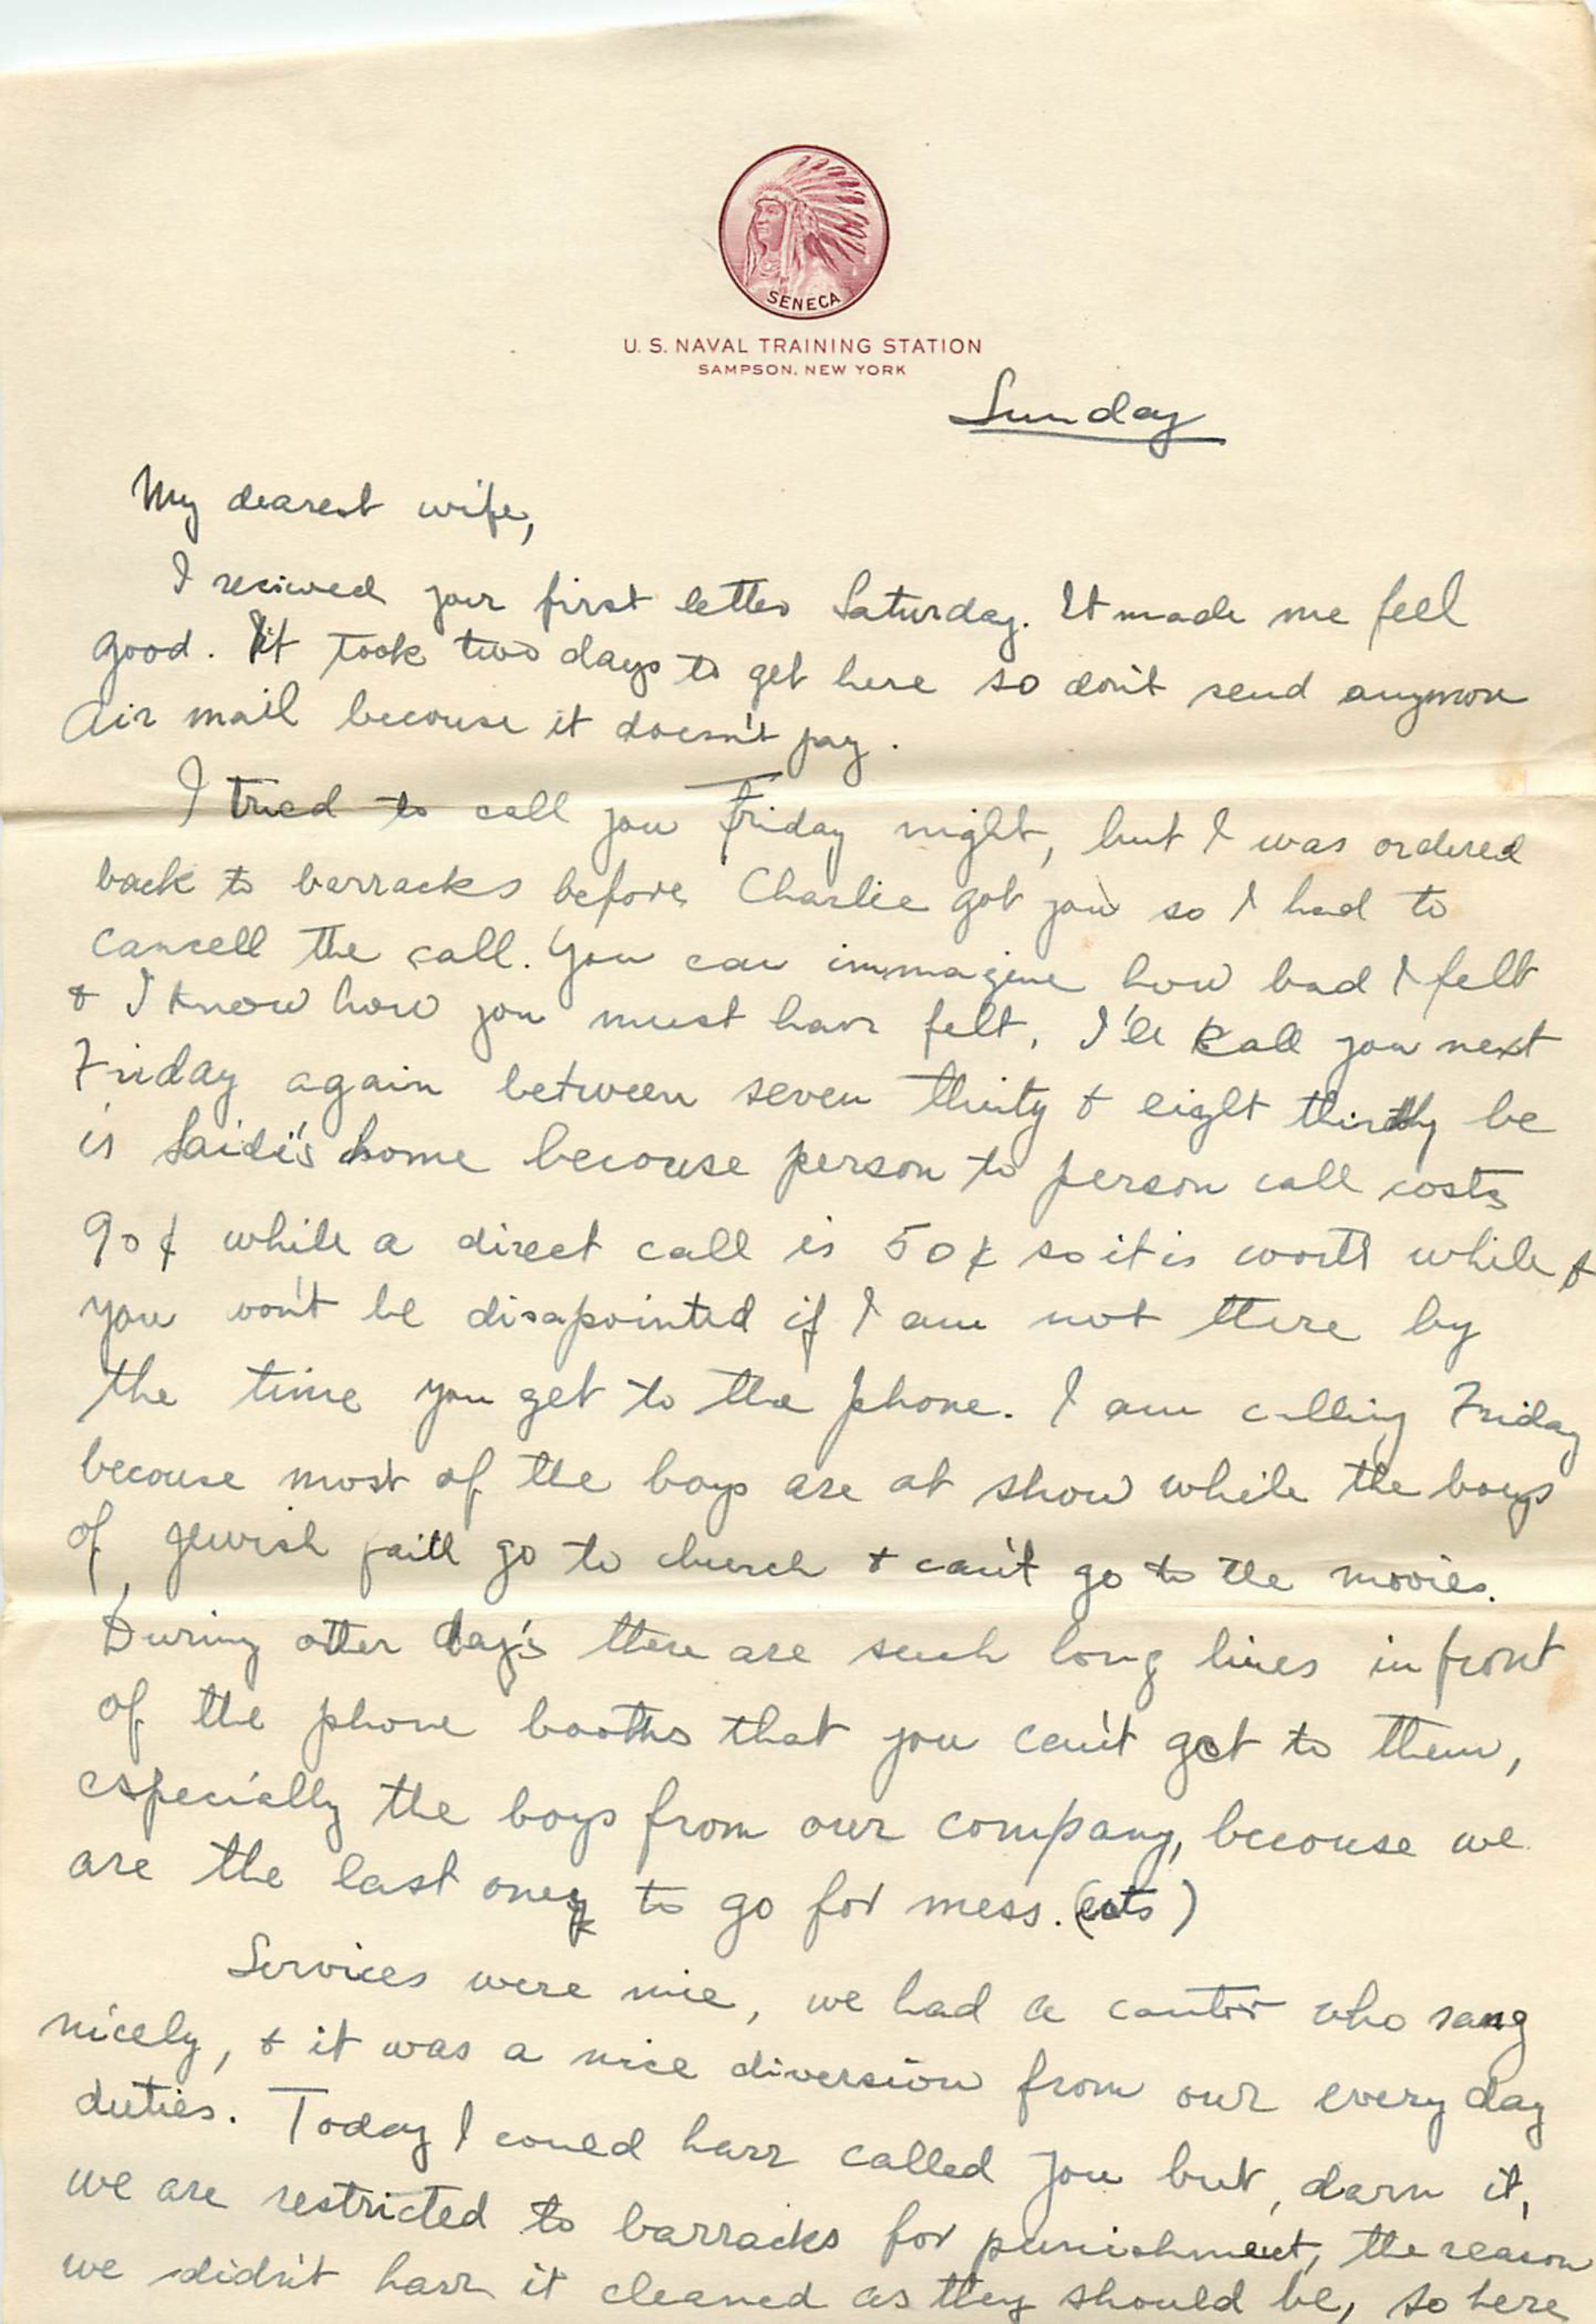 SENECA
U. S. NAVAL TRAINING STATION
SAMPSON, NEW YORK
Sunday
My dearest wife,
I recived your first letter Saturday. It made me feel
good. It took two days to get here so don't send anymore
Air mail becouse it doesn't pay.
I tried to call you Friday night, but I was ordered
back to barracks before Charlie got you so I had to
cancell the call. You can immagine how bad I felt
& I know how you must have felt. I'll call you next
Friday again between seven thirty & eight thirty be
is Saidi's home becouse person to person call costs
90¢ while a direct call is 50¢ so it is worth while &
you won't be disapointed if I am not there by
the time you get to the phone. I am calling Friday
becouse most of the boys are at show while the boys
of Jewish faith go to church & can't go to the movies.
During other day's there are such long lines in front
of the phone booths that you can't get to them,
especially the boys from our company, becouse we
are the last ones to go for mess. (eats)
Services were nice, we had a cantor who sang
nicely, & it was a nice diversion from our every day
duties. Today I could have called you but, darn it,
we are restricted to barracks for punishment, the reason
we didn't have it cleaned as they should be, so here